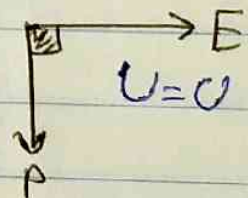 E
U=0
P